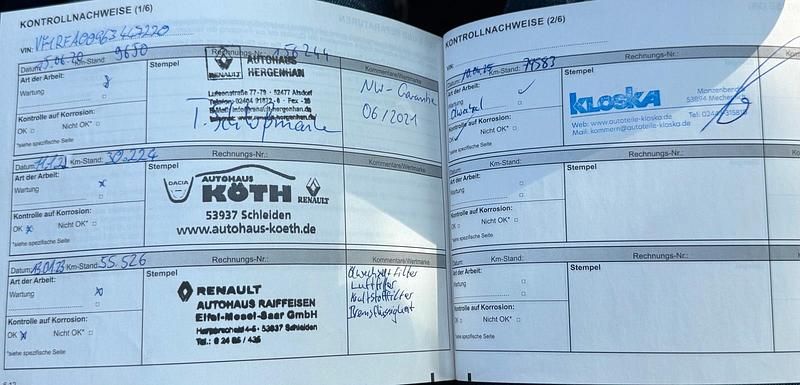 KONTROLLNACHWEISE (1/6)
VIN:
Datum: 5.06.20 Km-Stand: 9650
Rechnungs-Nr.: 156244
Art der Arbeit:
Wartung
Kontrolle auf Korrosion:
OK Nicht OK*
*siehe spezifische Seite
Stempel
RENAULT
AUTOHAUS
HERGENHAN
Kommentare/Wertmarke
NW-Garantie
06/2021
Datum: Km-Stand: 30.224
Rechnungs-Nr.:
Art der Arbeit:
Wartung x
Kontrolle auf Korrosion:
OK x Nicht OK*
*siehe spezifische Seite
Stempel
DACIA
AUTOHAUS
KÖTH
RENAULT
53937 Schleiden
www.autohaus-koeth.de
Kommentare/Wertmarke
Datum: 13.01.23 Km-Stand: 55.526
Rechnungs-Nr.:
Art der Arbeit:
Wartung x
Kontrolle auf Korrosion:
OK x Nicht OK*
*siehe spezifische Seite
Stempel
RENAULT
AUTOHAUS RAIFFEISEN
Eifel-Mosel-Saar GmbH
53937 Schleiden
Kommentare/Wertmarke
Ölwechsel+Filter
Luftfilter
Bremsflüssigkeit
KONTROLLNACHWEISE (2/6)
VIN:
Datum: Km-Stand: 71583
Rechnungs-Nr.:
Art der Arbeit:
Wartung
Kontrolle auf Korrosion:
OK Nicht OK*
*siehe spezifische Seite
Stempel
KLOSKA
53894
Web: www.autoteile-kloska.de
Mail: kommern@autoteile-kloska.de
Datum: Km-Stand:
Rechnungs-Nr.:
Art der Arbeit:
Wartung
Kontrolle auf Korrosion:
OK Nicht OK*
*siehe spezifische Seite
Stempel
Datum: Km-Stand:
Rechnungs-Nr.:
Art der Arbeit:
Wartung
Kontrolle auf Korrosion:
OK Nicht OK*
*siehe spezifische Seite
Stempel